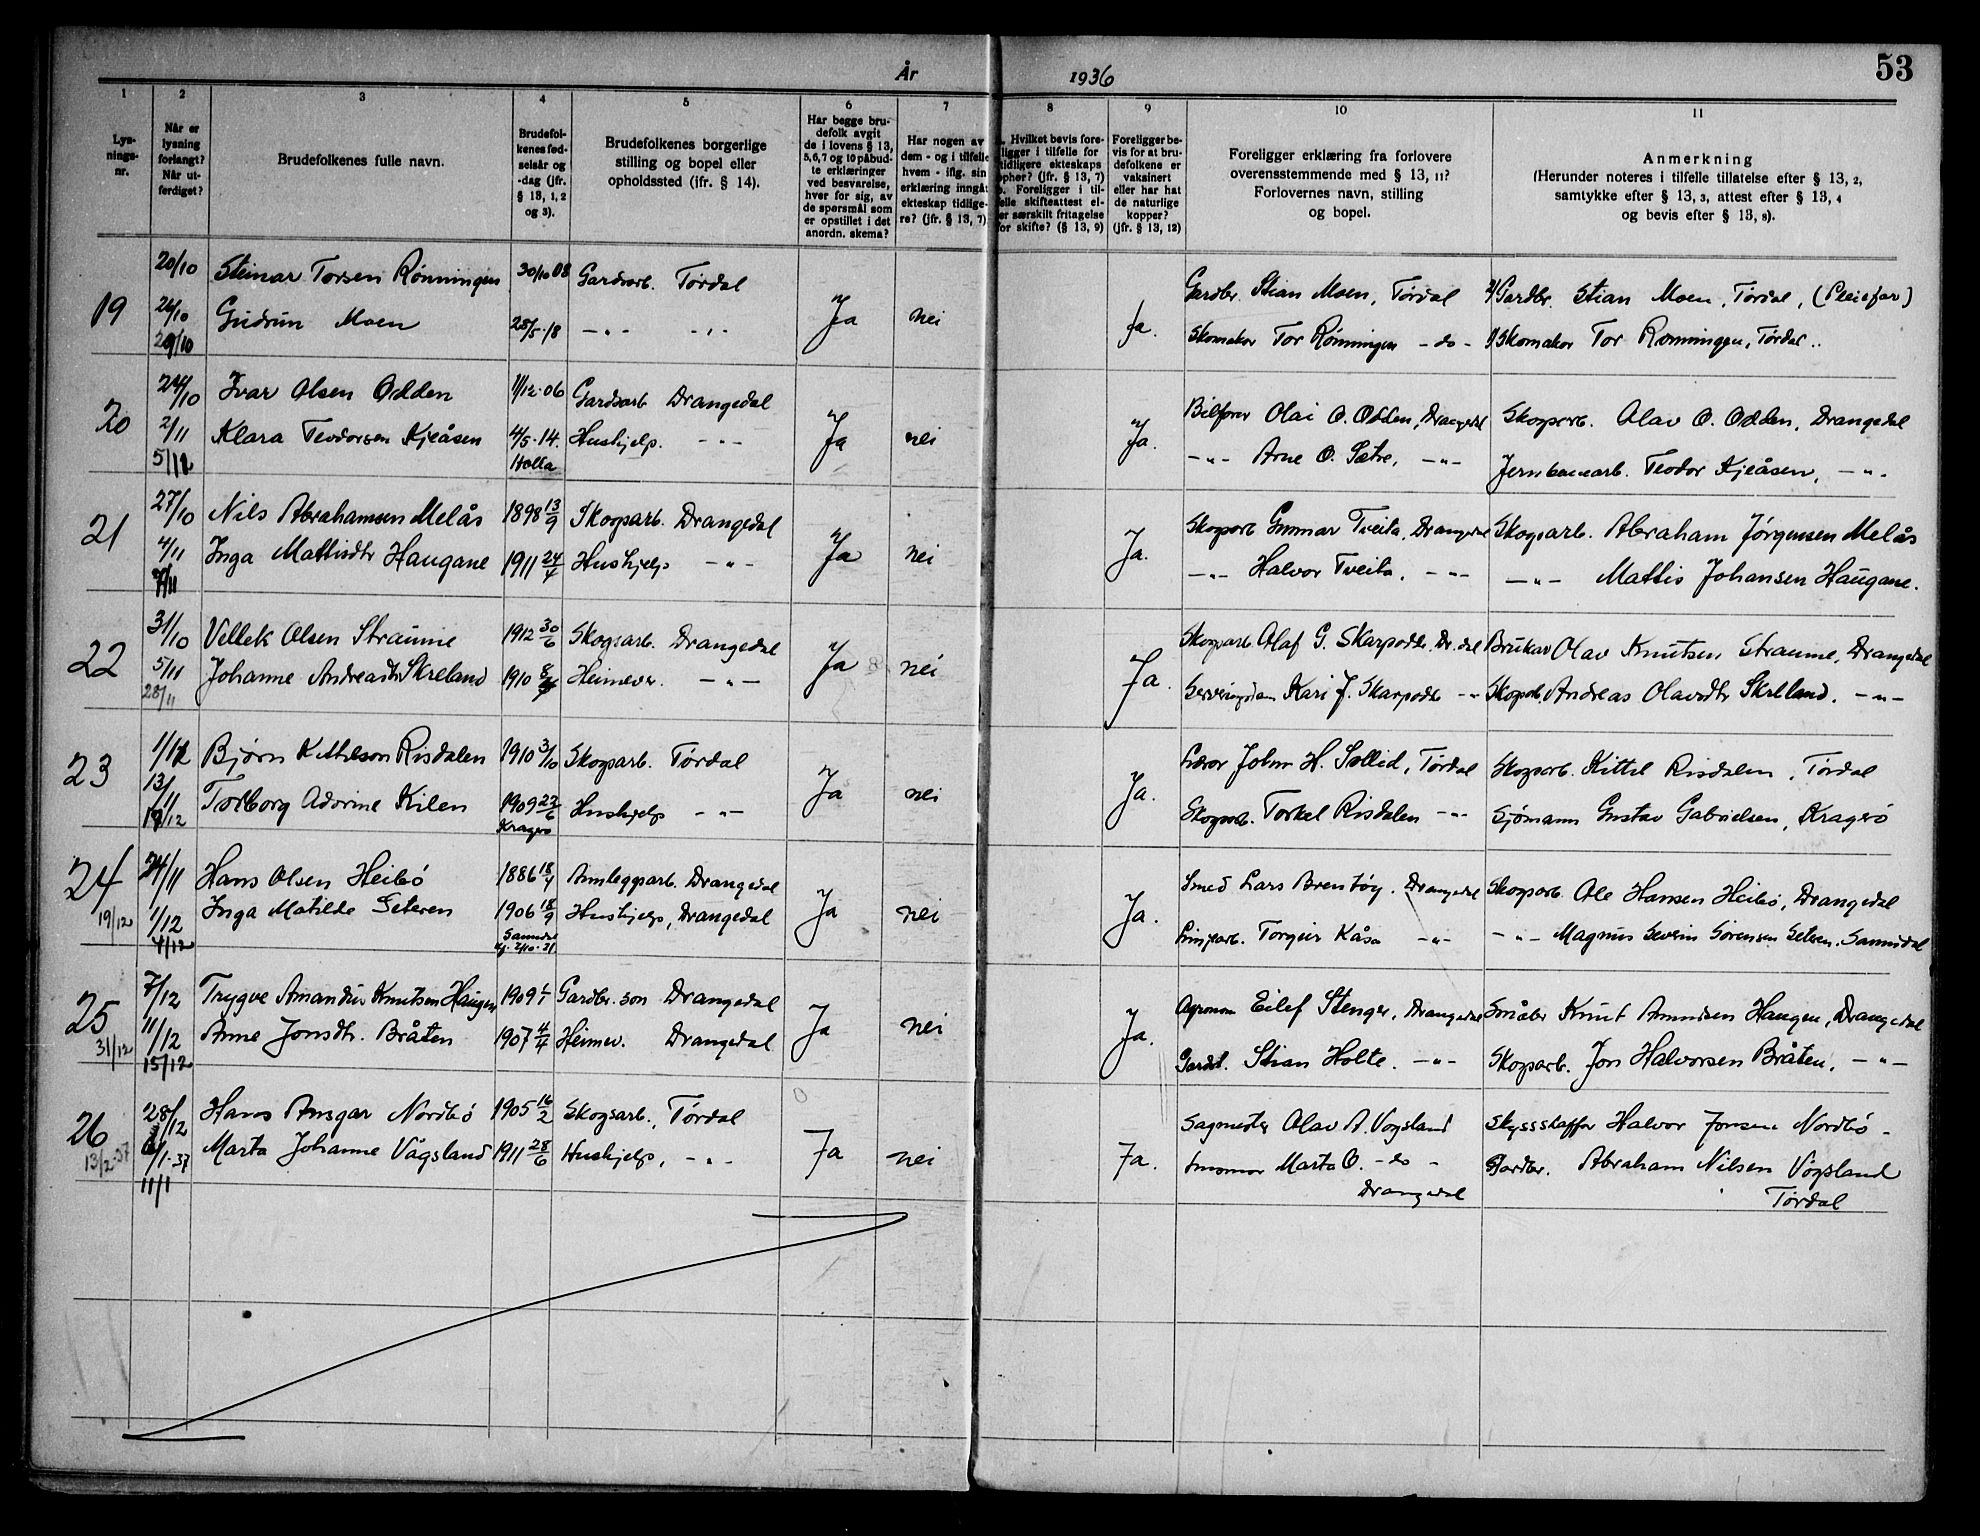 År 1936
53
1 2 3 4 5 6 7 8 9 10 11
Lys-
nings-
nr.
Når er
lysning
forlangt?
Når ut-
ferdiget?
Brudefolkenes fulle navn.
Brudefol-
kenes fød-
selsår og
-dag (jfr.
§ 13, 1, 2
og 3).
Brudefolkenes borgerlige
stilling og bopel eller
opholdssted (ifr. § 14).
Har begge bru-
defolk avgit
de i lovens § 13,
5,6,7 og 10 påbud-
te erklæringer
ved besvarelse,
hver for sig, av
de spørsmål som
er opstillet i det
anordn. skema?
Har nogen av
dem - og i tilfelle
hvem - iflg. sin
erklæring inngåt
ekteskap tidlige-
re? (jfr. § 13, 7)
Hvilket bevis fore-
ligger i tilfelle for
tidligere ekteskaps
ophør? (jfr. § 13, 7)
Foreligger i til-
felle skifteattest el-
er særskilt fritagelse
for skifte? (§ 13, 9)
Foreligger be-
vis for at bru-
defolkene er
vaksinert
eller har hat
de naturlige
kopper?
(jfr. § 13, 12)
Foreligger erklæring fra forlovere
overensstemmende med § 13, 11?
Forlovernes navn, stilling
og bopel.
Anmerkning
(Herunder noteres i tilfelle tillatelse efter § 13, 2,
samtykke efter § 13, 3, attest efter § 13, 4
og bevis efter § 13, 8).
20/10 Steinar Torsen Rønningen 30/10 08 Gardsarb. Tørdal Gardbr. Stian Moen, Tørdal Gardbr. Stian Moen, Tørdal, (Pleiefar)
19 26/10 Gudrun Moen 28/5-18 —"— —"— Ja nei Ja. Skomaker Tor Rønningen - do - Skomaker Tor Rønningen, Tørdal..
29/10
24/10 Ivar Olsen Odden 11/12-06 Gardsarb Drangedal Bilfører Olai O. Odden, Drangedal Skogsarb. Olav O. Odden, Drangedal
20 2/11 Klara Teodorsen Kjeåsen 4/5-14. Hushjelp. —"— Ja nei Ja. —"— Arne O. Sætre, —"— Jernbanearb. Teodor Kjeåsen, —"—
5/12 Holla
27/10 Nils Abrahamsen Melås 1898 13/9 Skogsarb. Drangedal Skogsarb Gunnar Tveita, Drangedal Skogsarb. Abraham Jørgensen Melås
21 4/11 Inga Mattisdtr Haugane 1911 24/4 Hushjelp —"— Ja nei Ja. —"— Halvor Tveita. —"— —"— Mattis Johansen Haugane.
31/10 Vellek Olsen Straume 1912 30/6 Skogsarb. Drangedal Skogsarb. Olaf G. Skarpodde, Dr.dal Bruker Olav Knutsen Straume, Drangedal
22 5/11 Johanne Andreasdtr Skreland 1910 8/ Heimever. —"— Ja nei Ja. Kari J. Skarpodde —"— Skogsarb. Andreas Olavsdtr Skreland. —"—
28/11
1/12 Bjørn Kittelson Risdalen 1910 3/10 Skogsarb. Tørdal Lærer John H. Sollid, Tørdal Skogsarb. Kittel Risdalen, Tørdal
23 13/11 Torborg Adorine Kilen 1909 22/6 Hushjelp —"— Ja nei Ja. Skogsarb. Torkel Risdalen —"— Sjømann Gustav Gabrielsen, Kragerø
/12 Kragerø
24/11 Hans Olsen Heibø 1886 18/4 Annleggsarb. Drangedal Smed Lars Brenbøy. Drangedal Skogsarb. Ole Hansen Heibø, Drangedal
24 1/12 Inga Matilde Seteren 1906 18/9 Hushjelp, Drangedal Ja nei Ja. Torgeir Kåsa —"— —"— Magnus Severin Sørensen Seteren, Sannidal
19/12 4/12 Sannidal
7/12 Trygve Amandus Knutsen Haugen 1909 1/1 Gardbr. son Drangedal Agronom Eilef Stenger, Drangedal Småbr Knut Amundsen Haugen, Drangedal
25 11/12 Anne Jonsdtr. Bråten 1907 4/4 Heimev. Drangedal Ja nei Ja. Gardbr. Stian Holte. —"— Skogsarb. Jon Halvorsen Bråten, —"—
31/12 15/12
28/12 Hans Ansgar Nordbø 1905 16/2 Skogsarb., Tørdal Sagmester Olav A. Vogsland Skyssskaffer Halvor Jonsen Nordbø -
26 /1-37 Marta Johanne Vågsland 1911 28/6 Hushjelp, —"— Ja nei Ja. Marta O. - do - Gardbr. Abraham Nilsen Vogsland
13/2-37 11/1 Drangedal Tørdal